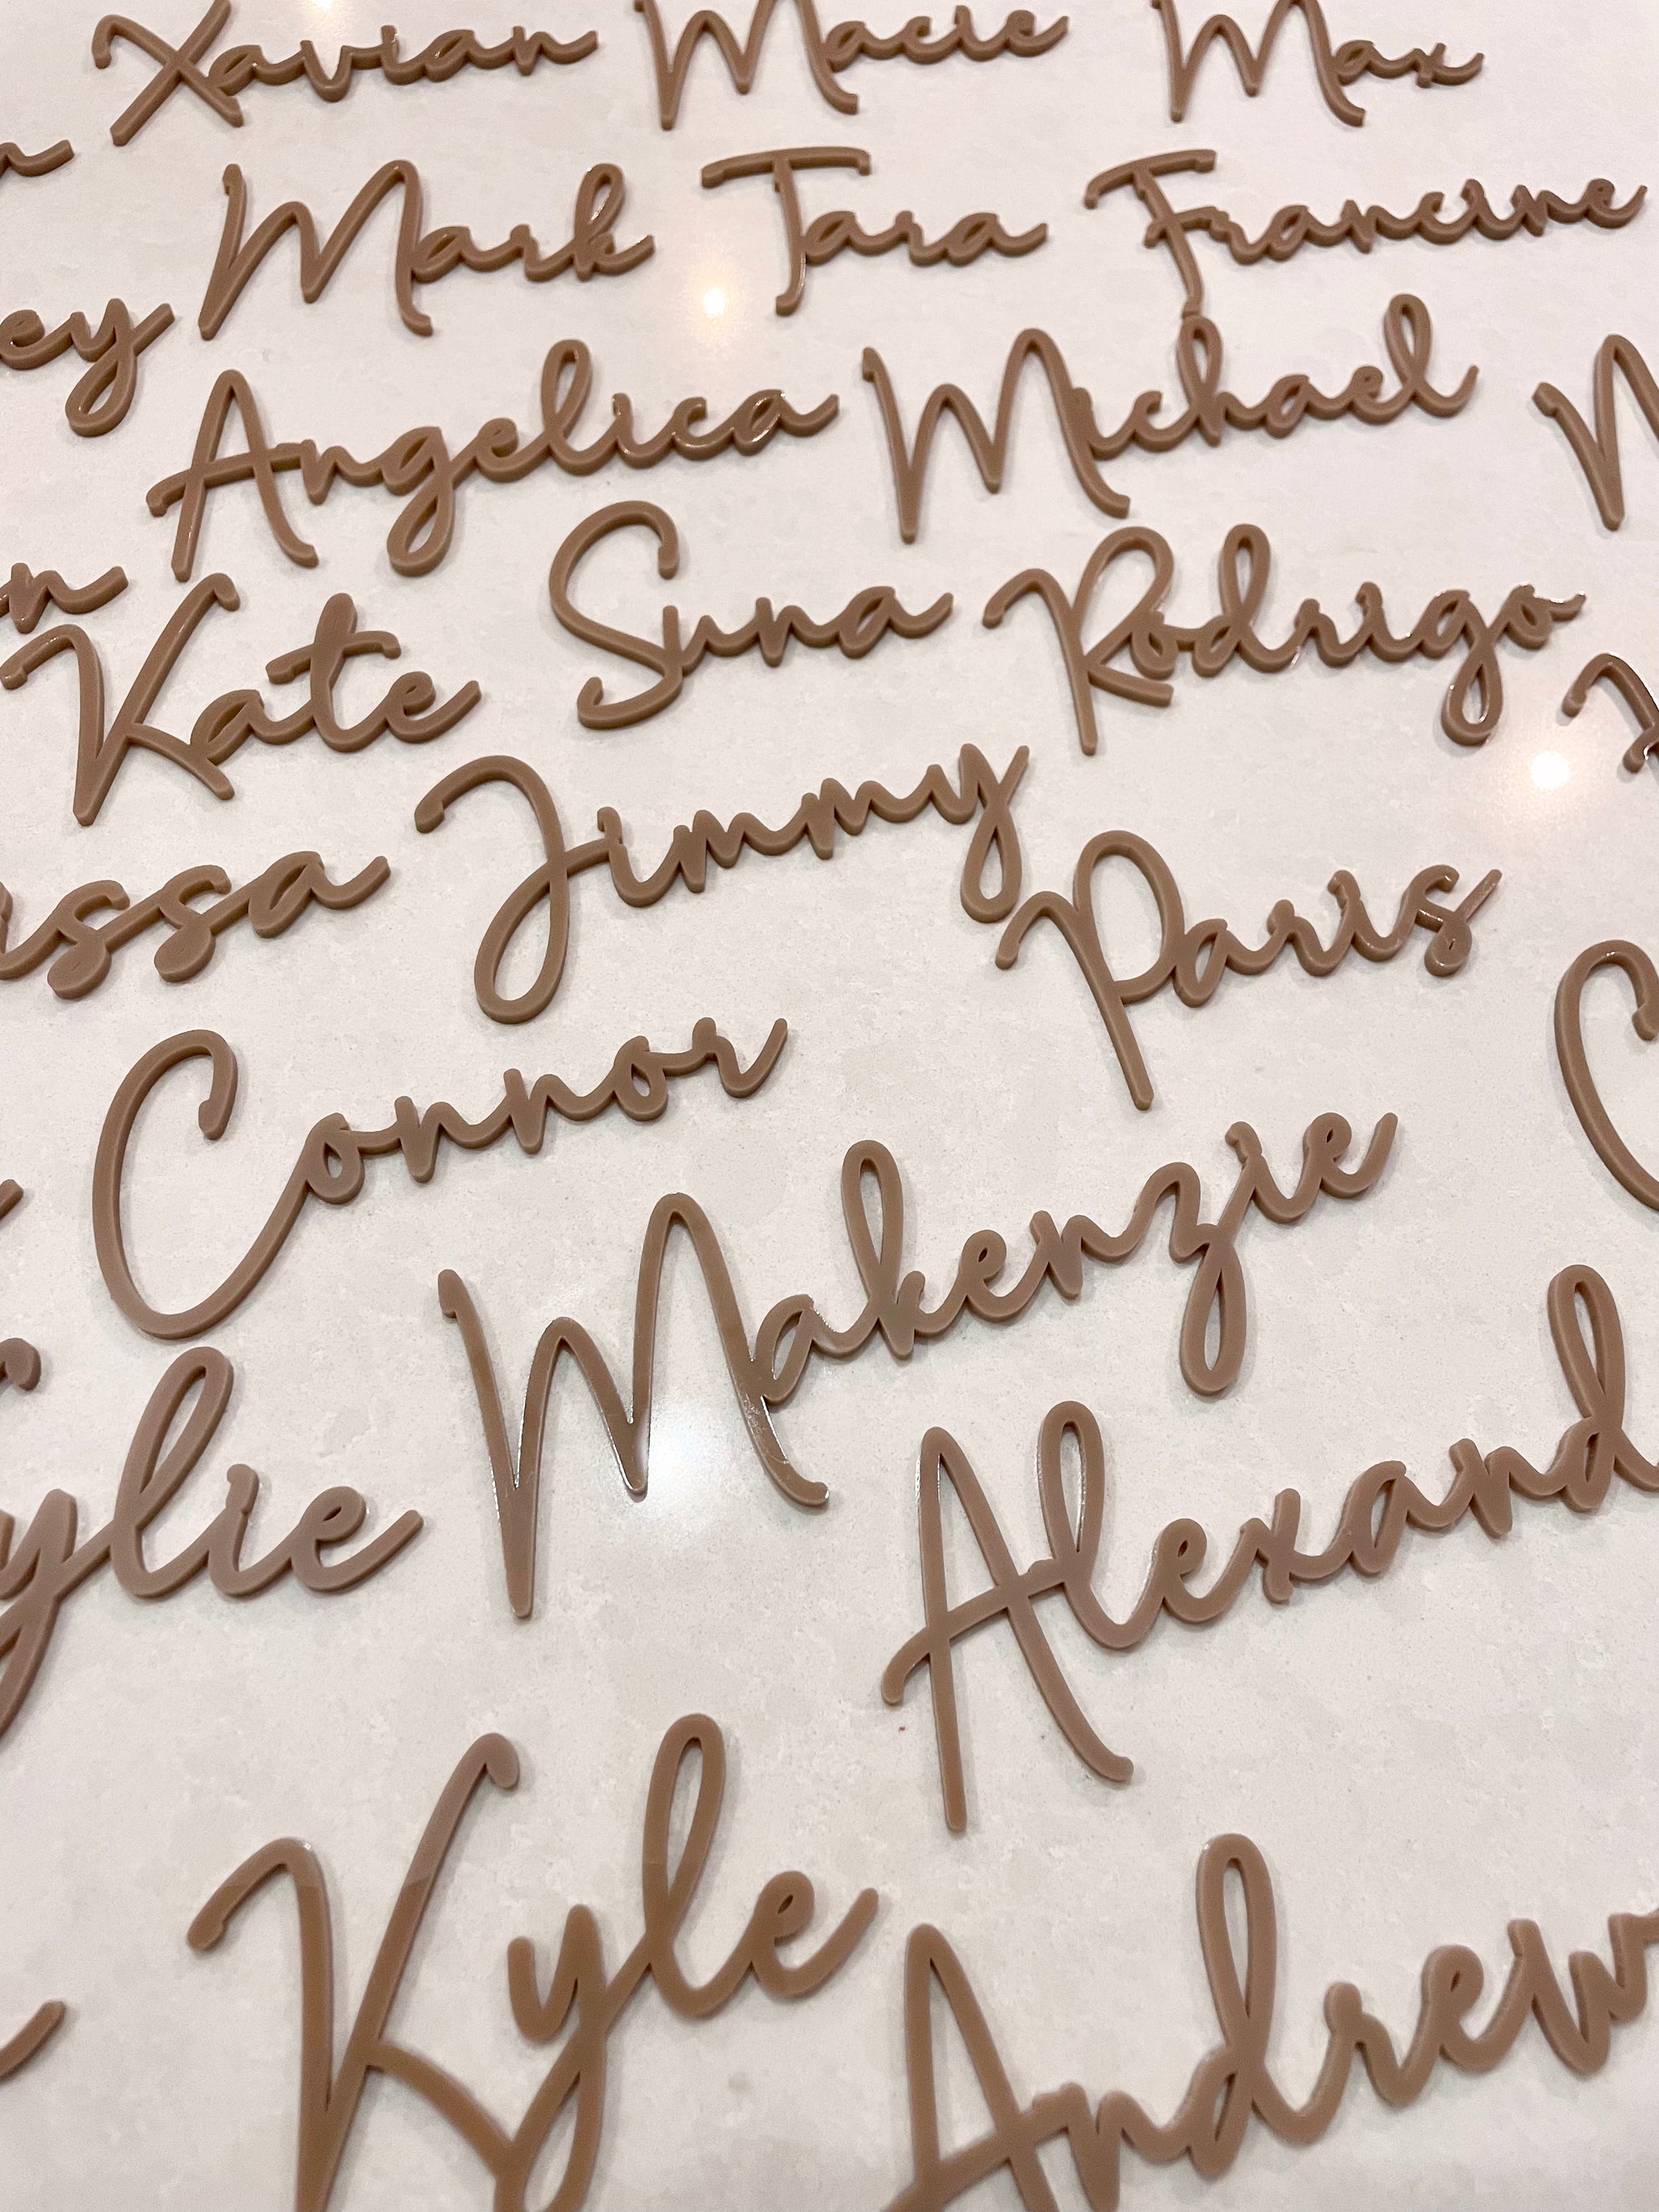 Xavian Macie Max
Mark Tara Francine
ey Angelica Michael
Kate Suna Rodrigo
ssa Jimmy Paris
Connor
Makenzie
ylie Alexand
Kyle Andrew